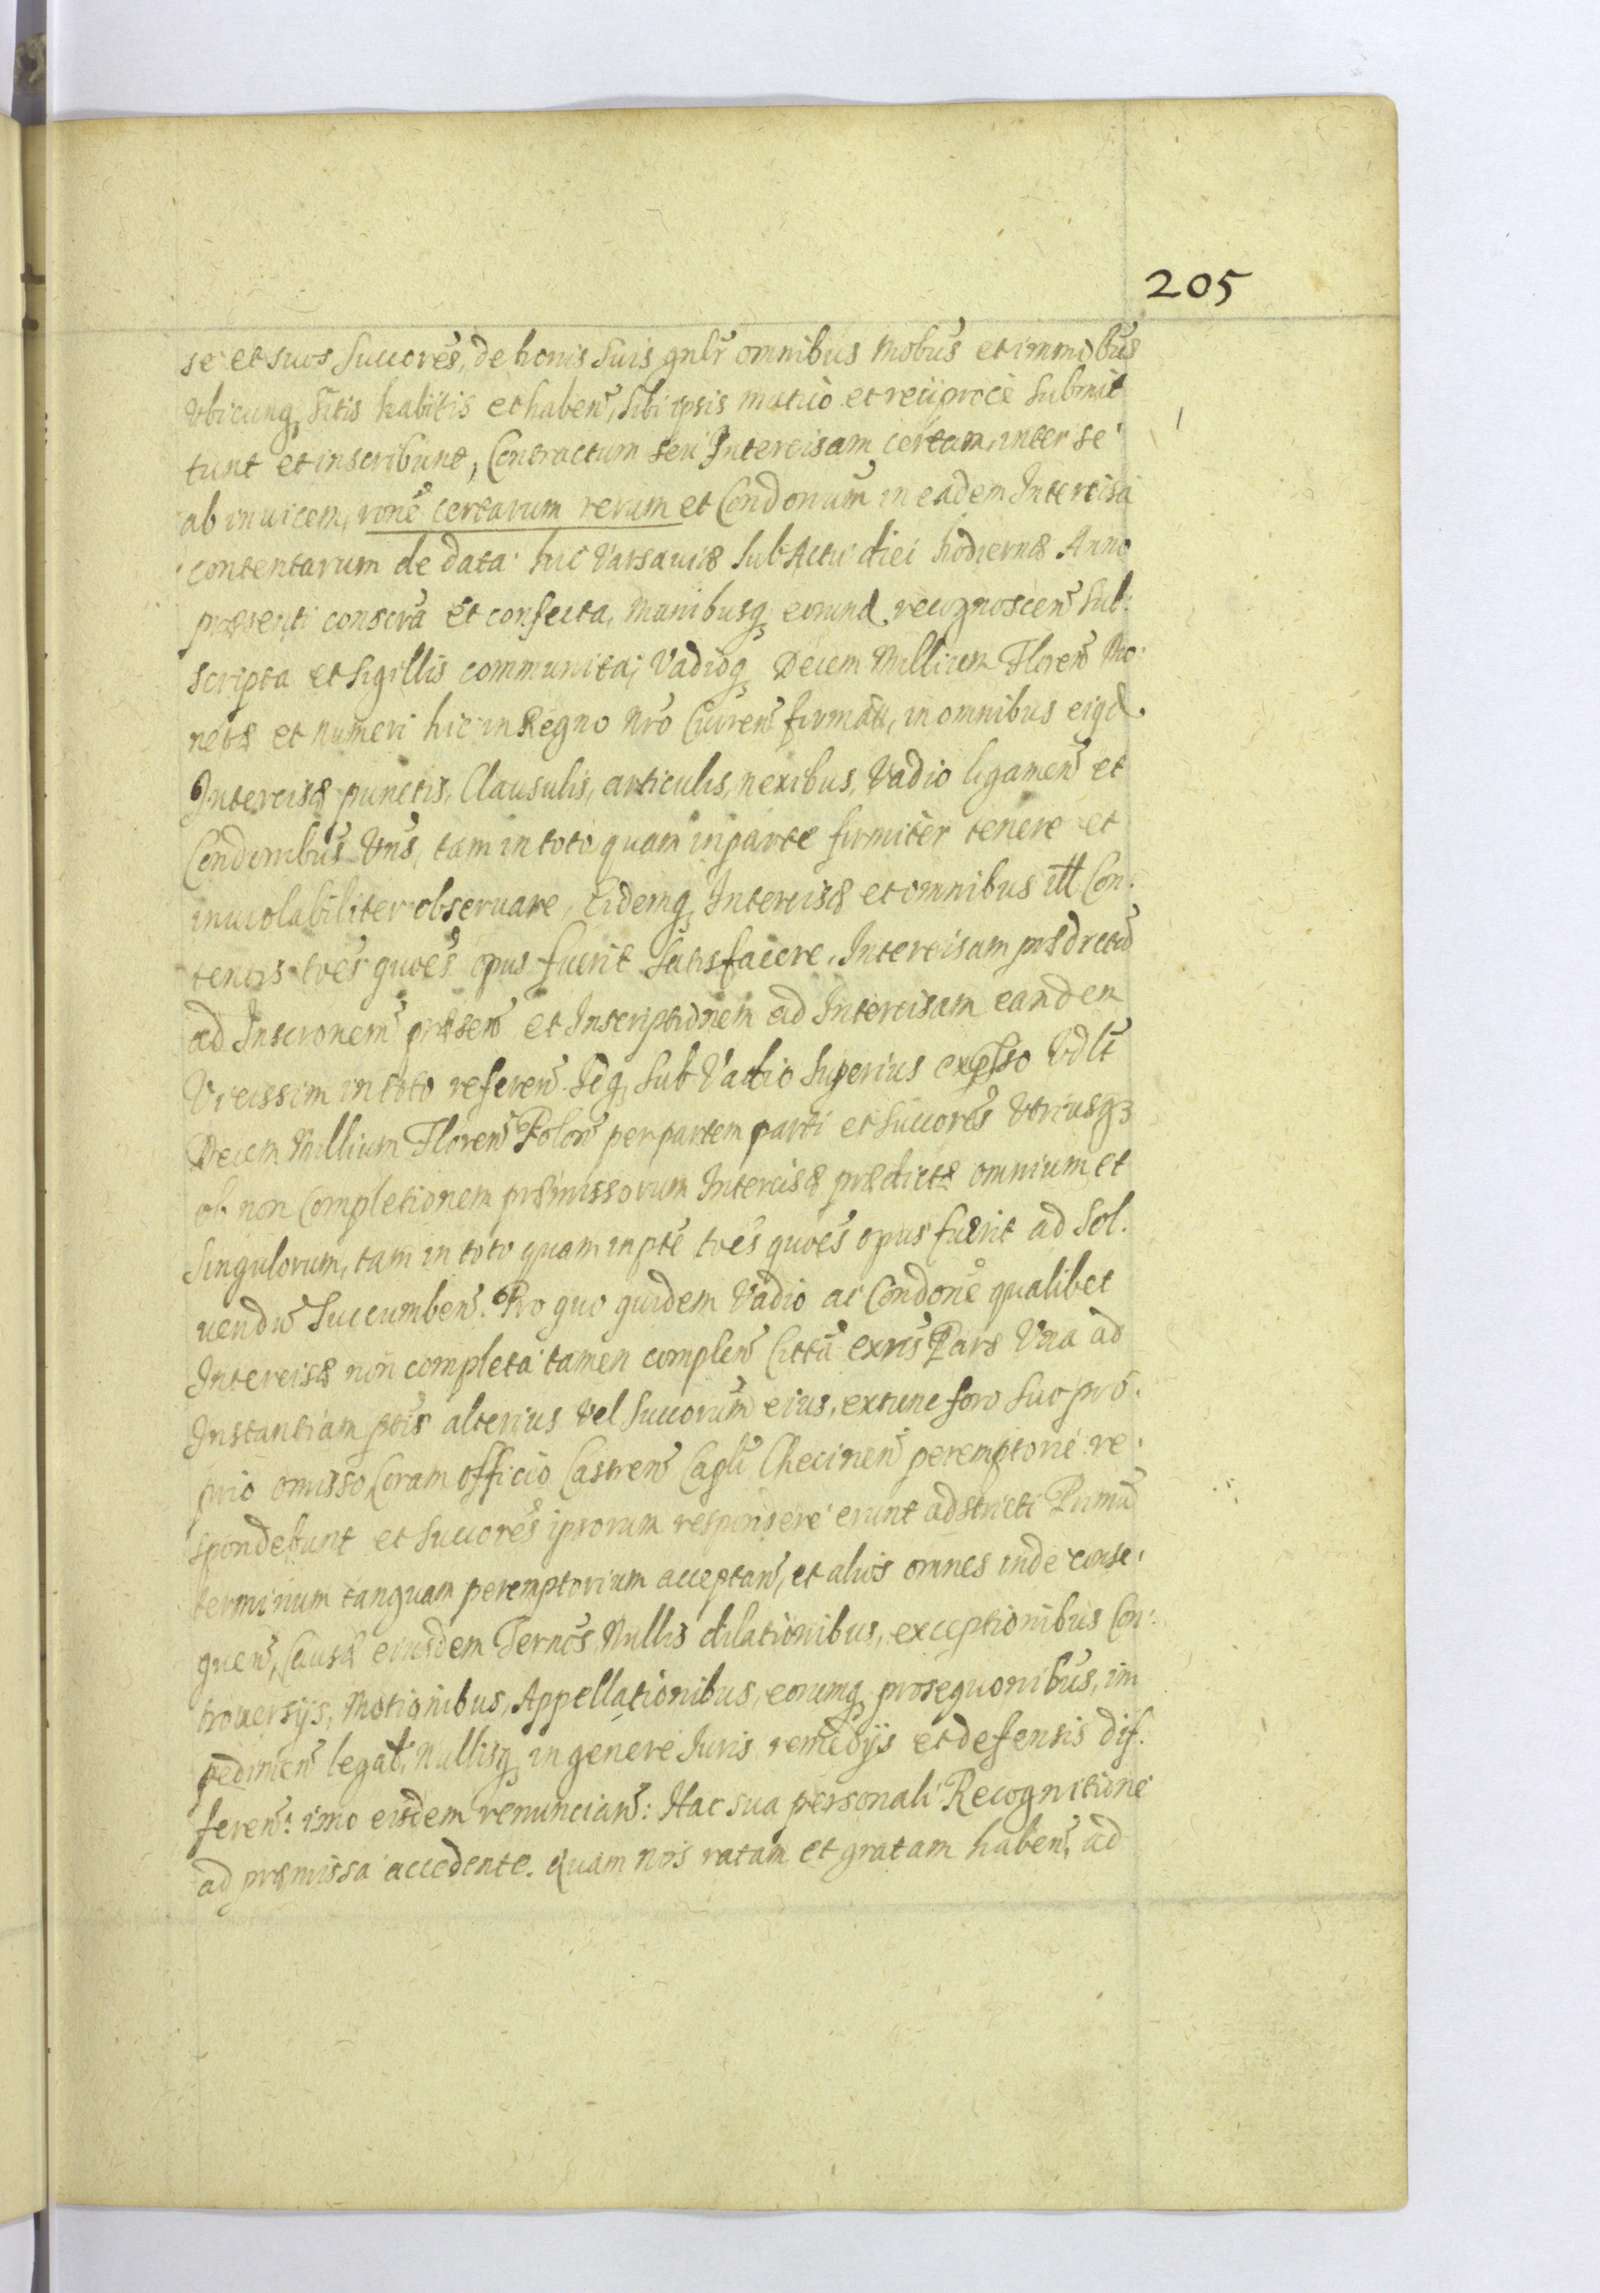 205
se et suos Succores, de bonis suis gnlr omnibus mobus et immobus
vbicunq sitis habitis et haben, sibi ipsis mutuò et reciprocè submit
tunt et inscribunt, Contractum seu Intercisam certam, inter se
ab inuicem, rone certarum rerum et Condonum in eadem Intercisa
contentarum de data hic Varsauiæ sub Actu diei hodiernæ Anno
præsenti conscra et confecta, Manibusq eorund recognoscen sub
scripta et sigillis communita, Vadioq Decem Millium Floren Mo
netæ et numeri hic in Regno Nro Curren firmatt, in omnibus eigd
Intercisæ punctis, Clausulis, articulis, nexibus, Vadio ligamen et
Condonibus Vns, tam in toto quam in parte firmitèr tenere et
inuiolabiliter obseruare, Eidemq Intercisæ et omnibus itt Con
tentis toes quoes opus fuerit Satisfacere. Intercisam prædictā
ad Inscronem præsen et Inscriptionem ad Intercisam eandem
Vicissim in toto referen. Seq sub Vadio superius expsso Vdlt
Decem Millium Floren Polon per partem parti et Succores Vtriusq3
ob non Completionem præmissorum Intercisæ prædictæ omnium et
singulorum, tam in toto quam in pte toes quoes opus fuerit ad sol
uendū Succumben. Pro quo quidem Vadio ac Condone qualibet
Intercisæ non completa tamen complen Citta exns Pars Vna ad
Instantiam ptis alterius vel Succorum eius, extunc foro suo pro
prio omisso Coram Officio Castren Capli Checinen peremptorie re
spondebunt et Succores ipsorum respondere erunt adstricti Primū
terminum tanquam peremptorium acceptan, et alios omnes inde conse
quen, Causæ eiusdem Ternos Nullis dilationibus, exceptionibus Con
trouersijs, Motionibus, Appellationibus, eorumq prosequonibus, im
pedimen legal, Nullisq in genere Iuris remedijs et defensis dif
feren: imo eisdem renuncian: Hac sua personali Recognitione
ad præmissa accedente. Quam nos ratam et gratam haben, ad